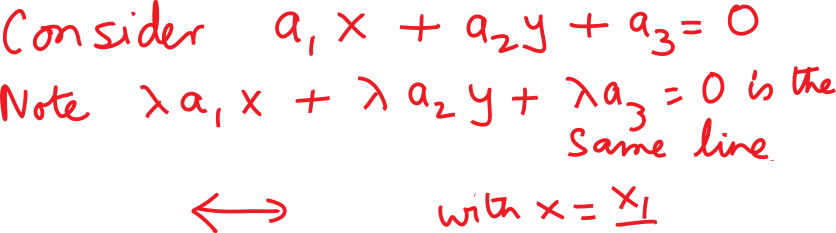 Consider a₁x + a₂y + a₃ = 0
Note λa₁x + λa₂y + λa₃ = 0 is the
same line
⟷ with x = x₁